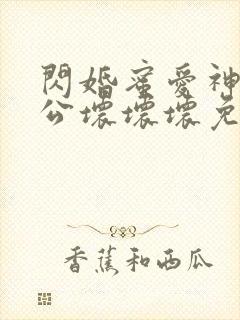 閃婚蜜愛神
公壞壞壞免
香蕉和西瓜